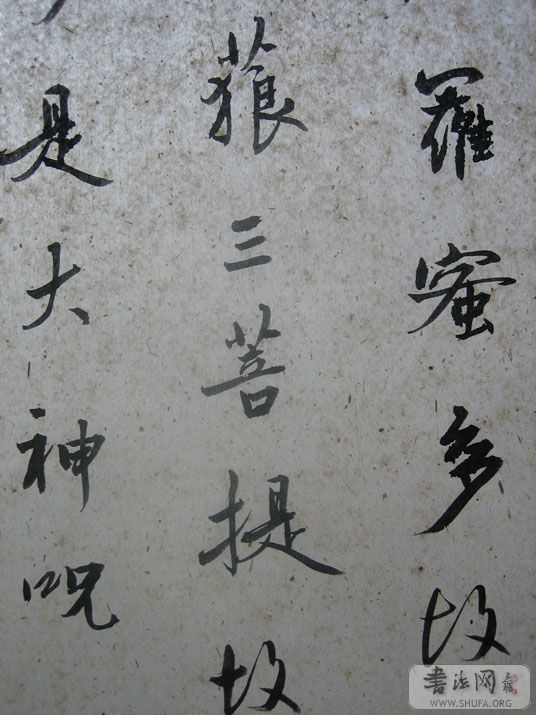 羅蜜多故
藐三菩提故
是大神呪
書法网
WWW.SHUFA.ORG